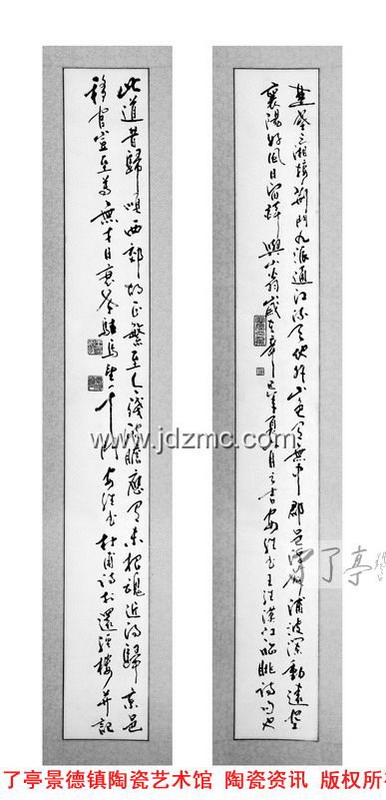 楚塞三湘接荊門九派通江流天地外山色有無中郡邑浮前浦波瀾動遠空
襄陽好風日留醉與山翁歲在辛巳年夏月之吉安書王維漢江臨眺詩句也
此道昔歸順西郊胡正繁至今殘破膽應有未招魂近得歸京邑
移官豈至尊無才日衰老駐馬望千門安書杜甫詩於還樓并記
www.jdzmc.com
了亭
了亭景德镇陶瓷艺术馆 陶瓷资讯 版权所